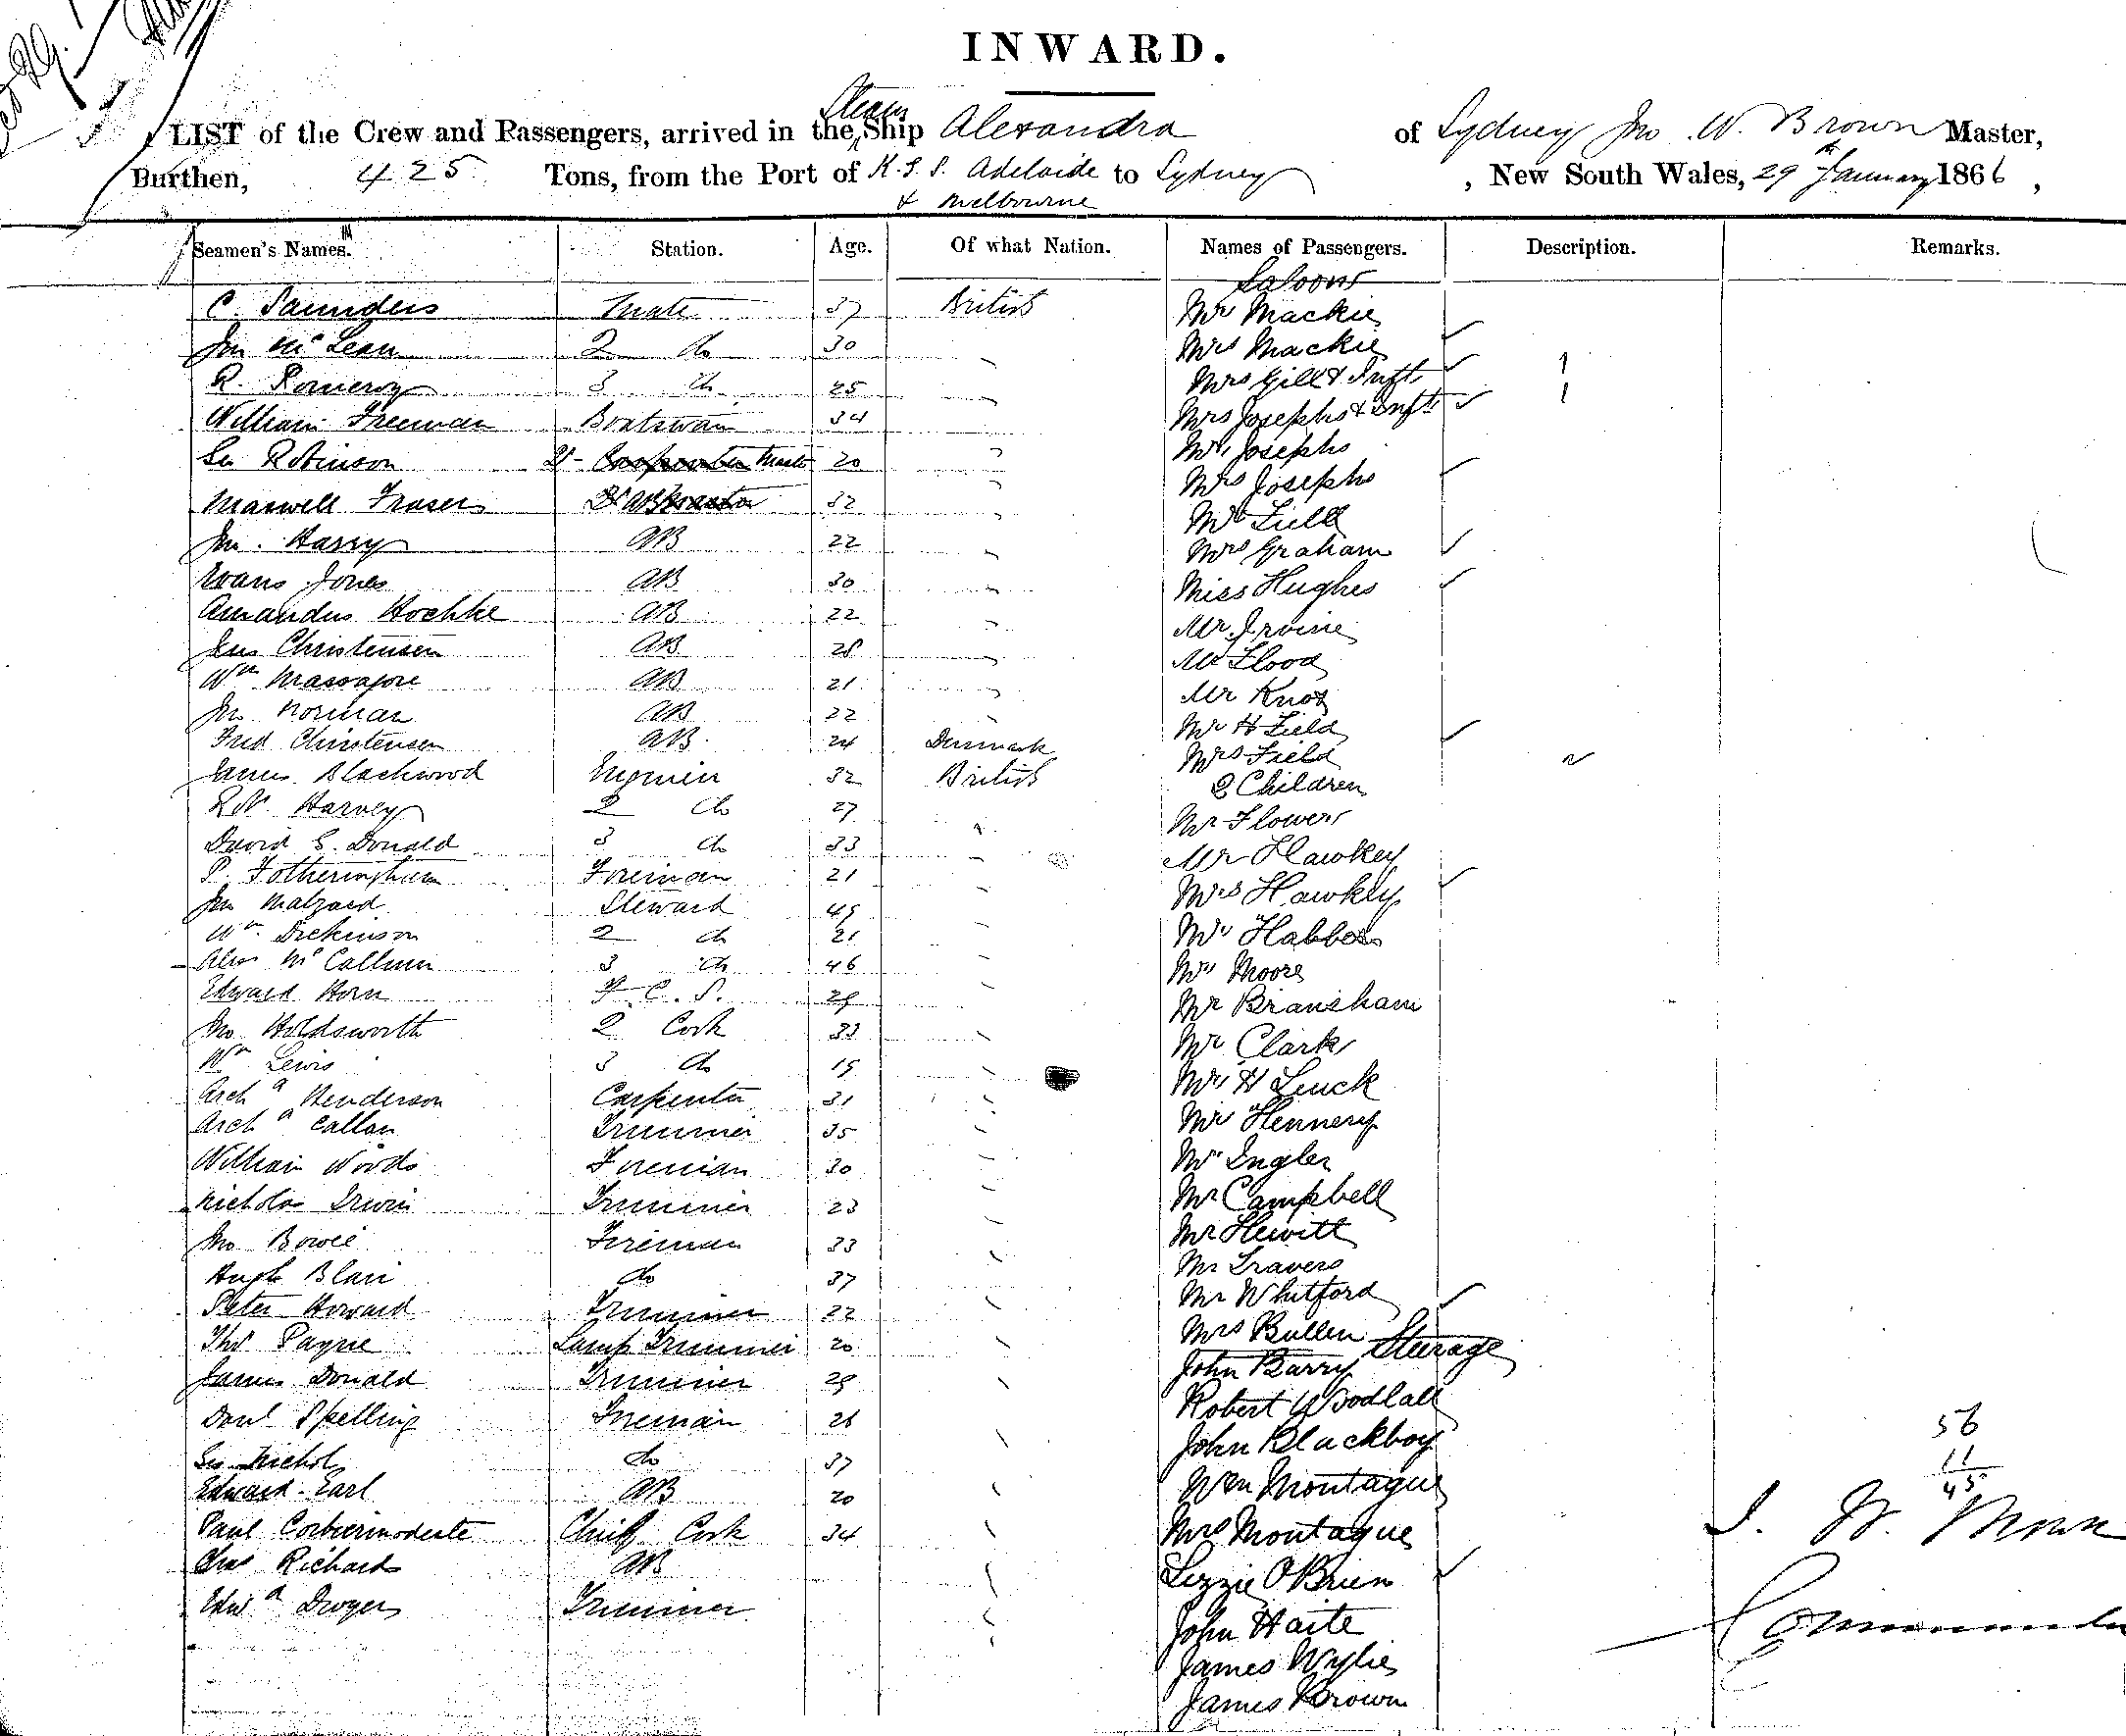 INWARD.
LIST of the Crew and Passengers, arrived in the Steam Ship Alexandra of Sydney Jno W. Brown Master,
Burthen, 425 Tons, from the Port of K.G.S. Adelaide & Melbourne to Sydney, New South Wales, 29th January 1866,
Seamen's Names. Station. Age. Of what Nation. Names of Passengers. Description. Remarks.
Saloon
C. Saunders Mate 37 British Mr Mackie
Jno McLean 2 do 30 Mrs Mackie
R. Pomeroy 3 do 25 Mrs Gill & Inft 1
William Freeman Boatswain 34 Mrs Josephs & Inft 1
Robinson 20 Mr Josephs
Maxwell Fraser 32 Mrs Josephs
Jno. Harry AB 22 Mr
Evans Jones AB 30 Mrs Graham
Amandus Hochke AB 22 Miss Hughes
Jens Christensen AB 28 Mr Irvine
Wm AB 21 Mr Flood
Jno Norman AB 22 Mr Knox
Fred Christensen AB 24 Denmark Mr H Field
James Blackwood Engineer 32 British Mrs Field
2 Children 2
Harvey 2 do 27 Mr Flower
David S. Donald 3 do 33 Mr Hawkey
P. Fotheringham Foreman 21 Mrs Hawkey
Jno Malzard Steward 49
Wm Dickinson 2 do 21 Moore
Alexr McCallum 3 do 46 Mr Bransham
Edward Horn F. C. S. 29 Mr Clark
Jno Holdsworth 2 Cook 33 H Leuck
Wm Lewis 3 do 19 Mr Hennery
Archd Henderson Carpenter 31 Mr Ingler
Archd Callan Trimmer 35 Mr Campbell
William Woods Foreman 30 Mr Hewitt
Nicholas Irwin Trimmer 23 Mr Travers
Jno Bowie Fireman 33 Mr Whitford
Hugh Blair do 37 Mrs Bullen
Steerage
Peter Howard Trimmer 22 John Barry
Thos Payne Lamp Trimmer 20 Robert Woodlall
James Donald Trimmer 29 John Blackboy
Danl Spelling Fireman 26 Wm Montague
Geo Nichol do 37 Mrs Montague
Edward Earl AB 20 Lizzie O'Brien
Paul Chief Cook 34 John Haite
Chas Richards AB James Wylie
Edwd Dwyer Trimmer James Brown
56
11
45
J. W. Brown
Commander